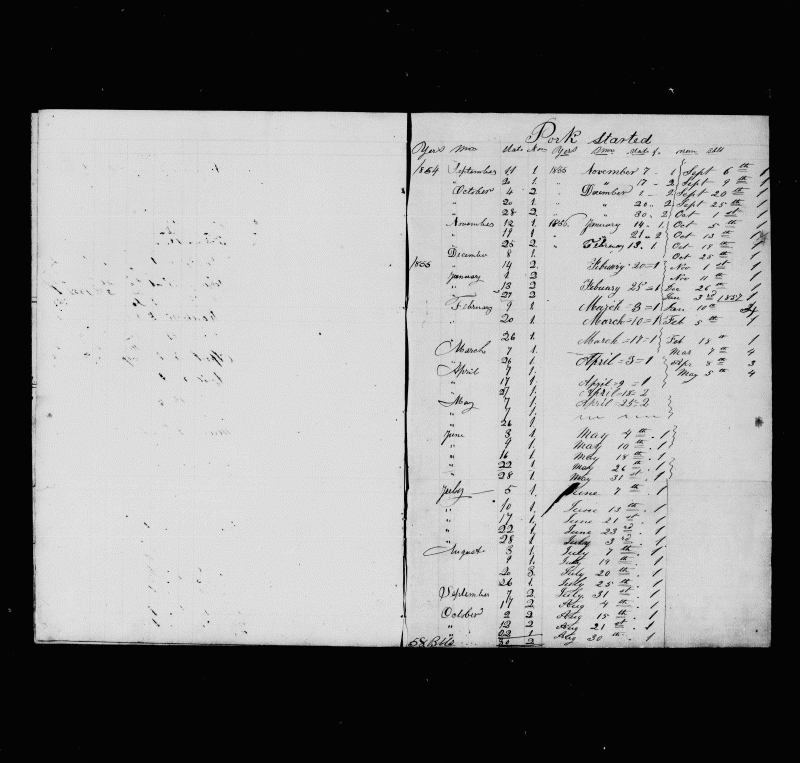 Pork Started
Years Mos date Nom Years Mos date of nom
1854 September 11 1. 1855 November 7 - 1 Sept 6th 1
" 20 1. " " 17 - 2 Sept 9th 1
October 4 2 " December 2 - 2 Sept 20th 1
" 20 1 " " 20 - 2 Sept 25th 1
" 28 2 " 30 - 2 Oct 1st 1
November 12 1 1856 January 14 - 1. Oct 5th 1
" 19 1 " 21 - 2 Oct 13th 1
" 25 2 " February 13. 1. Oct 18th 1
December 8 1. Oct 25th 1
1855 " 14 2 February 20=1 Nov 1st 1
January 2 Nov 11th 1
" 13 2 February 25=1 Dec 26th 1
" 27 2 Jan 3rd 1857 1
February 9 1 March 3=1 Jan 10th
" 20 1 March=10=1 Feb 5th 1
" 26 1. March=17=1 Feb 18th 1
March 7 1. Mar 7th 4
" 26 1. April=5=1 Apr 8th 3
April 7 1. May 5th 4
" 17 1. April=9=1
" 27 1. April=18=2
May 7 1. April=25=2
" 1.
" 26 1.
June 3 1 May 4th. 1
" 9 1 May 10th. 1
" 16 1 May 18th. 1
" 22 1 May 26th. 1
" 28 1 May 31st. 1
July 5 1. June 7th. 1
" 10 1. June 13th. 1
" 17 1. June 21st. 1
" 22 1 June 23rd. 1
" 28 1 July 3rd. 1
August 3 1. July 7th. 1
" 9 1. July 14th. 1
" 20 3 July 20th. 1
" 26 1. July 25th. 1
September 7 2 July 31st. 1
" 17 2 Aug 4th. 1
October 2 2 Aug 15th. 1
" 12 2 Aug 21st. 1
" 22 1 Aug 30th. 1
58 Bbls 30 2